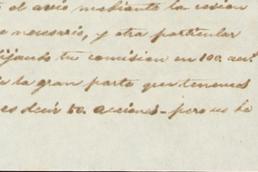 el avio mediante la cesion
necesario, y otra particular
fijando tu comision en 100. acc.s
la gran parte que tenemos
es decir 50. acciones - pero us he